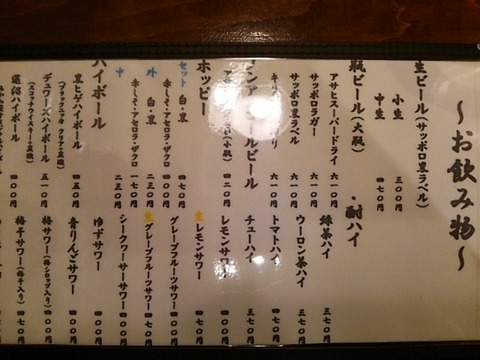 〜お飲み物〜
生ビール(サッポロ黒ラベル)
小生 三〇〇円
中生 四七〇円
瓶ビール(大瓶)
アサヒスーパードライ 六一〇円
サッポロラガー 六一〇円
サッポロ黒ラベル 六一〇円
キリン 六一〇円
ビール
(小瓶) 四二〇円
ホッピー
セット 白・黒 四七〇円
赤しそ・アセロラ・ザクロ 四〇〇円
外 白・黒 二三〇円
赤しそ・アセロラ・ザクロ 一五〇円
中 二三〇円
ハイボール
黒ヒゲハイボール 四五〇円
デュワーズハイボール 五一〇円
蓮沼ハイボール 四〇〇円
・酎ハイ
緑茶ハイ 三七〇円
ウーロン茶ハイ 三七〇円
トマトハイ 四〇〇円
チューハイ 三七〇円
レモンサワー 四〇〇円
生レモンサワー 四七〇円
グレープフルーツサワー 四〇〇円
生グレープフルーツサワー 四七〇円
シークワーサーサワー 四〇〇円
ゆずサワー 四〇〇円
青りんごサワー 四〇〇円
梅サワー(梅シロップ入り) 四〇〇円
梅干サワー(梅干入り) 四〇〇円